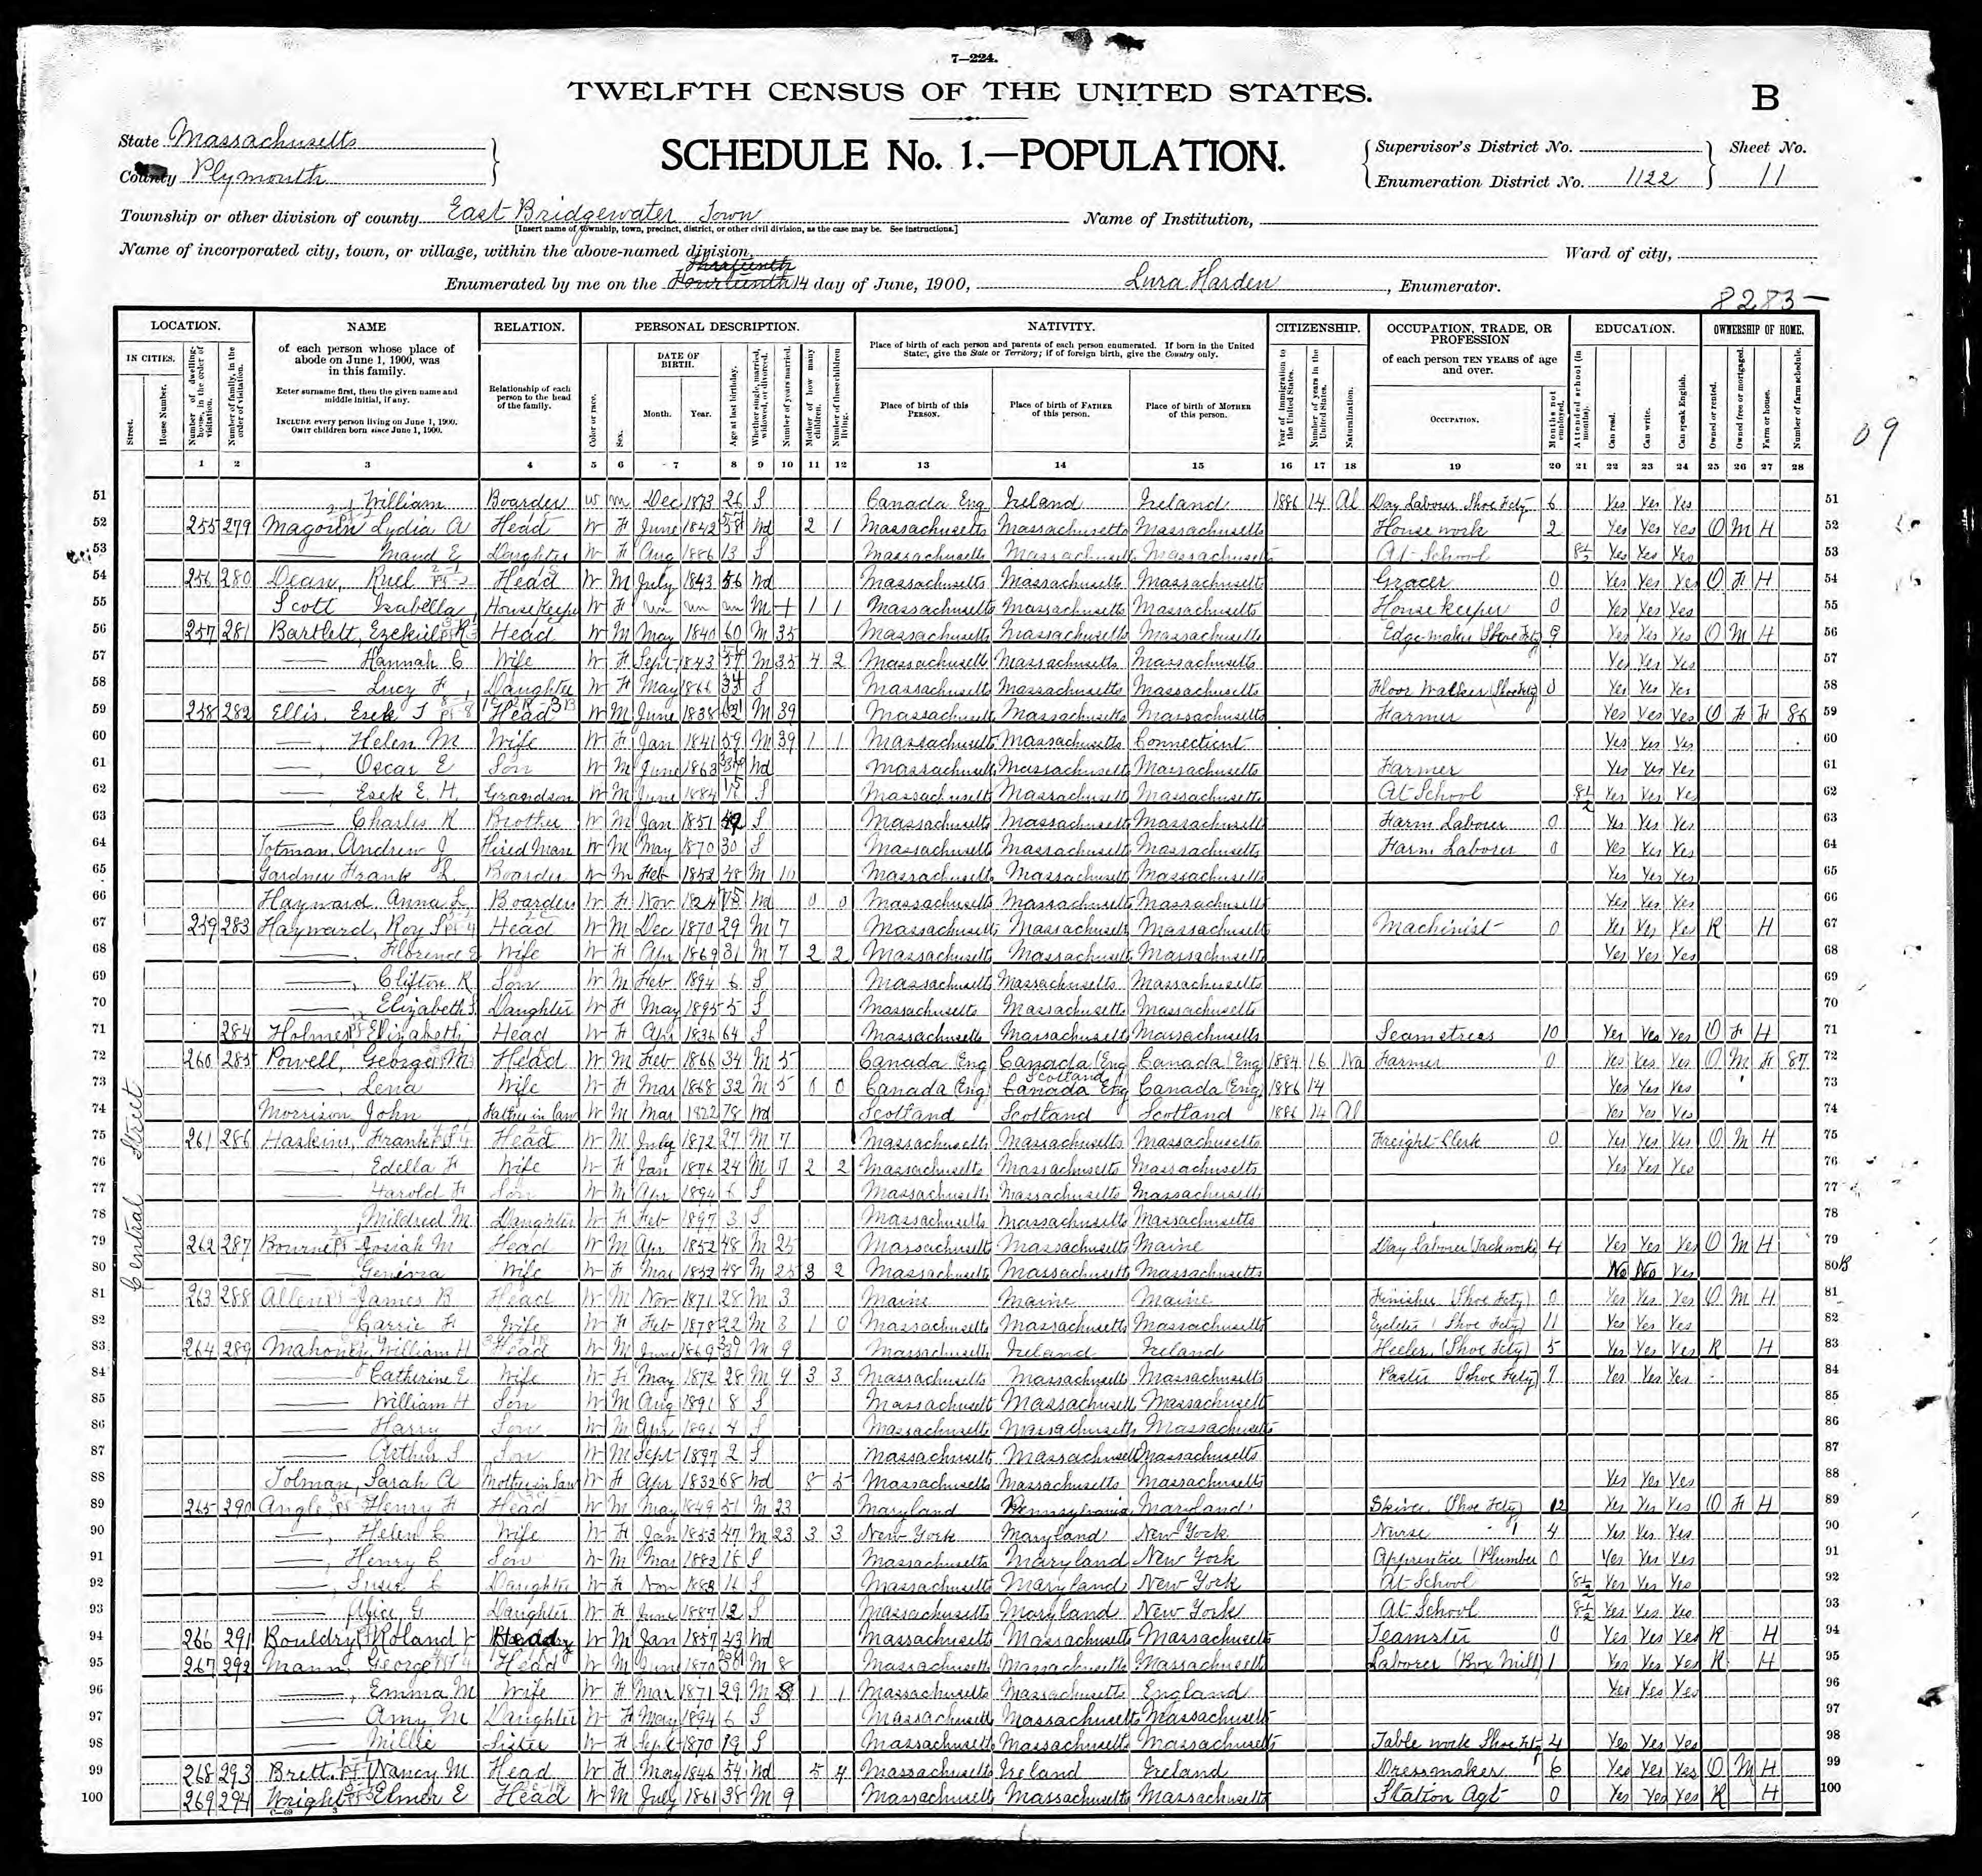 7—224.
TWELFTH CENSUS OF THE UNITED STATES.
B
State Massachusetts
County Plymouth
SCHEDULE No. 1.—POPULATION.
Supervisor's District No.
Enumeration District No. 1122
Sheet No. 11
Township or other division of county East Bridgewater Town
[Insert name of township, town, precinct, district, or other civil division, as the case may be. See instructions.]
Name of Institution,
Name of incorporated city, town, or village, within the above-named division,
Ward of city,
Thirteenth
Enumerated by me on the Fourteenth 14 day of June, 1900, Lura Harden, Enumerator.
8283-
LOCATION. NAME RELATION. PERSONAL DESCRIPTION. NATIVITY. CITIZENSHIP. OCCUPATION, TRADE, OR PROFESSION EDUCATION. OWNERSHIP OF HOME.
IN CITIES. Street. House Number. Number of dwelling-house, in the order of visitation. Number of family, in the order of visitation.
of each person whose place of abode on June 1, 1900, was in this family.
Enter surname first, then the given name and middle initial, if any.
INCLUDE every person living on June 1, 1900. OMIT children born since June 1, 1900.
Relationship of each person to the head of the family.
Color or race. Sex. DATE OF BIRTH. Month. Year. Age at last birthday. Whether single, married, widowed, or divorced. Number of years married. Mother of how many children. Number of these children living.
Place of birth of each person and parents of each person enumerated. If born in the United States, give the State or Territory; if of foreign birth, give the Country only.
Place of birth of this PERSON. Place of birth of FATHER of this person. Place of birth of MOTHER of this person.
Year of immigration to the United States. Number of years in the United States. Naturalization.
of each person TEN YEARS of age and over.
OCCUPATION. Months not employed.
Attended school (in months). Can read. Can write. Can speak English.
Owned or rented. Owned free or mortgaged. Farm or house. Number of farm schedule.
1 2 3 4 5 6 7 8 9 10 11 12 13 14 15 16 17 18 19 20 21 22 23 24 25 26 27 28
09
Central Street
51 William Boarder W M Dec 1873 26 S Canada Eng Ireland Ireland 1886 14 Al Day Laborer Shoe Fcty 6 Yes Yes Yes 51
52 255 279 Lydia A Head W F June 1842 Wd 2 1 Massachusetts Massachusetts Massachusetts House work 2 Yes Yes Yes O M H 52
53 Maud E Daughter W F Aug 1886 13 S Massachusetts Massachusetts Massachusetts At School 8½ Yes Yes Yes 53
54 256 280 Dean, Ruel Head W M July 1843 56 Wd Massachusetts Massachusetts Massachusetts Grocer 0 Yes Yes Yes O F H 54
55 Scott Isabella Housekeeper W F un un un M 1 1 Massachusetts Massachusetts Massachusetts Housekeeper 0 Yes Yes Yes 55
56 257 281 Bartlett, Ezekiel R Head W M May 1840 60 M 35 Massachusetts Massachusetts Massachusetts Edge-maker (Shoe Fcty) 9 Yes Yes Yes O M H 56
57 Hannah C Wife W F Sept 1843 M 35 4 2 Massachusetts Massachusetts Massachusetts Yes Yes Yes 57
58 Lucy F Daughter W F May 1866 34 S Massachusetts Massachusetts Massachusetts Floor Walker (Shoe Fcty) 0 Yes Yes Yes 58
59 258 282 Ellis, Esek T Head W M June 1838 M 39 Massachusetts Massachusetts Massachusetts Farmer Yes Yes Yes O F F 86 59
60 Helen M Wife W F Jan 1841 59 M 39 1 1 Massachusetts Massachusetts Connecticut Yes Yes Yes 60
61 Oscar E Son W M June 1863 Wd Massachusetts Massachusetts Massachusetts Farmer Yes Yes Yes 61
62 Esek E. H. Grandson W M June 1884 S Massachusetts Massachusetts Massachusetts At School 8½ Yes Yes Yes 62
63 Charles R Brother W M Jan 1851 49 S Massachusetts Massachusetts Massachusetts Farm Laborer 0 Yes Yes Yes 63
64 Totman, Andrew J Hired Man W M May 1870 30 S Massachusetts Massachusetts Massachusetts Farm Laborer 0 Yes Yes Yes 64
65 Gardner Frank L. Boarder W M Feb 1852 48 M 10 Massachusetts Massachusetts Massachusetts Yes Yes Yes 65
66 Hayward Anna L Boarder W F Nov 1824 75 Wd 0 0 Massachusetts Massachusetts Massachusetts Yes Yes Yes 66
67 259 283 Hayward, Roy S Head W M Dec 1870 29 M 7 Massachusetts Massachusetts Massachusetts Machinist 0 Yes Yes Yes R H 67
68 Florence E Wife W F Apr 1869 31 M 7 2 2 Massachusetts Massachusetts Massachusetts Yes Yes Yes 68
69 Clifton R Son W M Feb 1894 6 S Massachusetts Massachusetts Massachusetts 69
70 Elizabeth S. Daughter W F May 1895 5 S Massachusetts Massachusetts Massachusetts 70
71 284 Holmes Elizabeth Head W F Apr 1836 64 S Massachusetts Massachusetts Massachusetts Seamstress 10 Yes Yes Yes O F H 71
72 260 285 Powell, George M Head W M Feb 1866 34 M 5 Canada (Eng Canada (Eng Canada (Eng 1884 16 Na Farmer 0 Yes Yes Yes O M F 87 72
73 Lena Wife W F Mar 1868 32 M 5 0 0 Canada (Eng) Scotland Canada Eng Canada (Eng) 1886 14 Yes Yes Yes 73
74 Morrison John Father in law W M Mar 1822 78 Wd Scotland Scotland Scotland 1886 14 Al Yes Yes Yes 74
75 261 286 Haskins, Frank Head W M July 1872 27 M 7 Massachusetts Massachusetts Massachusetts Freight Clerk 0 Yes Yes Yes O M H 75
76 Edella F Wife W F Jan 1876 24 M 7 2 2 Massachusetts Massachusetts Massachusetts Yes Yes Yes 76
77 Harold F Son W M Apr 1894 6 S Massachusetts Massachusetts Massachusetts 77
78 Mildred M Daughter W F Feb 1897 3 S Massachusetts Massachusetts Massachusetts 78
79 262 287 Bourne Josiah M Head W M Apr 1852 48 M 25 Massachusetts Massachusetts Maine Day Laborer (Tack works) 4 Yes Yes Yes O M H 79
80 Genevra Wife W F Mar 1852 48 M 25 3 2 Massachusetts Massachusetts Massachusetts No No Yes 80
81 263 288 Allen James B Head W M Nov 1871 28 M 3 Maine Maine Maine Finisher (Shoe Fcty) 0 Yes Yes Yes O M H 81
82 Carrie F Wife W F Feb 1878 22 M 3 1 0 Massachusetts Massachusetts Massachusetts (Shoe Fcty) 11 Yes Yes Yes 82
83 264 289 William H Head W M June 1869 M 9 Massachusetts Ireland Ireland Heeler (Shoe Fcty) 5 Yes Yes Yes R H 83
84 Catherine E Wife W F May 1872 28 M 9 3 3 Massachusetts Massachusetts Massachusetts Paster (Shoe Fcty) 7 Yes Yes Yes 84
85 William H Son W M Aug 1891 8 S Massachusetts Massachusetts Massachusetts 85
86 Harry Son W M Apr 1896 4 S Massachusetts Massachusetts Massachusetts 86
87 Arthur S Son W M Sept 1897 2 S Massachusetts Massachusetts Massachusetts 87
88 Tolman, Sarah A Mother in law W F Apr 1832 68 Wd 8 5 Massachusetts Massachusetts Massachusetts Yes Yes Yes 88
89 265 290 Angle, Henry F Head W M May 1849 51 M 23 Maryland Pennsylvania Maryland Skiver (Shoe Fcty) 12 Yes Yes Yes O F H 89
90 Helen C Wife W F Jan 1853 47 M 23 3 3 New York Maryland New York Nurse 4 Yes Yes Yes 90
91 Henry C Son W M Mar 1882 18 S Massachusetts Maryland New York Apprentice (Plumber 0 Yes Yes Yes 91
92 Susie C Daughter W F Nov 1883 16 S Massachusetts Maryland New York At School 8½ Yes Yes Yes 92
93 Alice G Daughter W F June 1887 12 S Massachusetts Maryland New York At School 8½ Yes Yes Yes 93
94 266 291 Bouldry Roland V Head W M Jan 1857 43 Wd Massachusetts Massachusetts Massachusetts Teamster 0 Yes Yes Yes R H 94
95 267 292 Mann, George Head W M June 1870 M 8 Massachusetts Massachusetts Massachusetts Laborer (Box Mill) 1 Yes Yes Yes R H 95
96 Emma M Wife W F Mar 1871 29 M 8 1 1 Massachusetts Massachusetts England Yes Yes Yes 96
97 Amy M Daughter W F May 1894 6 S Massachusetts Massachusetts Massachusetts 97
98 Millie Sister W F Sept 1870 19 S Massachusetts Massachusetts Massachusetts Table work Shoe Fcty 4 Yes Yes Yes 98
99 268 293 Brett Nancy M Head W F May 1846 54 Wd 5 4 Massachusetts Ireland Ireland Dressmaker 6 Yes Yes Yes O M H 99
100 269 294 Wright Elmer E Head W M July 1861 38 M 9 Massachusetts Massachusetts Massachusetts Station Agt 0 Yes Yes Yes R H 100